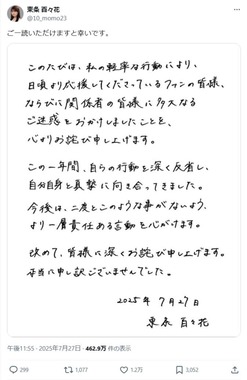 東条 百々花
@10_momo23
ご一読いただけますと幸いです。
このたびは、私の軽率な行動により、
日頃より応援してくださっているファンの皆様、
ならびに関係者の皆様に多大なる
ご迷惑をおかけしましたことを、
心よりお詫び申し上げます。
この一年間、自らの行動を深く反省し、
自分自身と真摯に向き合ってきました。
今後は、二度とこのような事がないよう、
より一層責任ある言動を心がけます。
改めて、皆様に深くお詫び申し上げます。
本当に申し訳ございませんでした。
2025年 7月27日
東条 百々花
午後11:55 · 2025年7月27日 · 462.9万 件の表示
299
1,077
1.2万
3,052